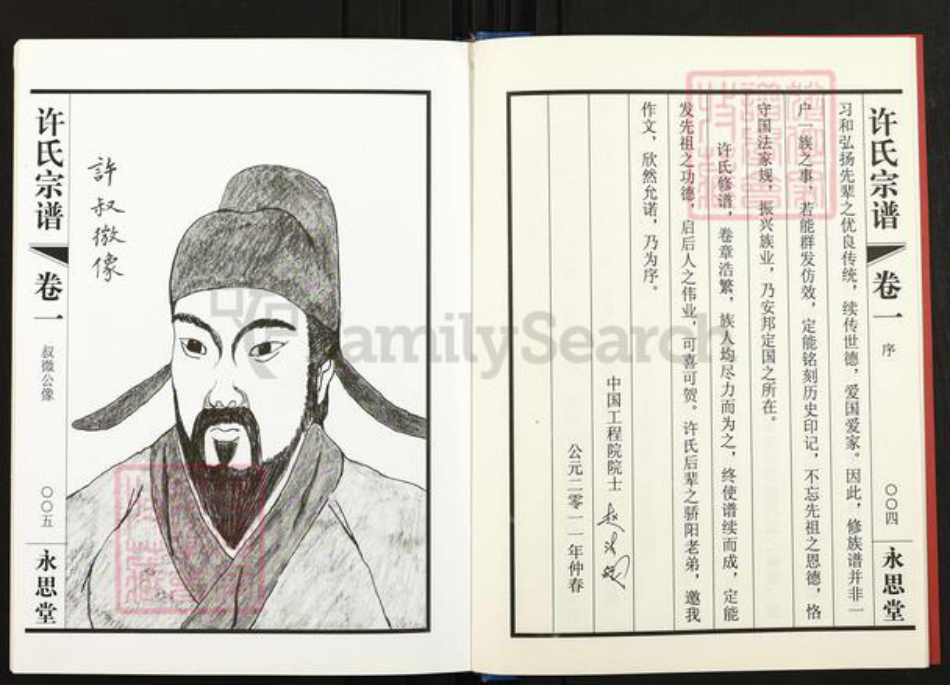 许氏宗谱
卷一
序
〇〇四
永思堂
习和弘扬先辈之优良传统，续传世德，爱国爱家。因此，修族谱并非一
户一族之事，若能群发仿效，定能铭刻历史印记，不忘先祖之恩德，恪
守国法家规，振兴族业，乃安邦定国之所在。
许氏修谱，卷章浩繁，族人均尽力而为之，终使谱续而成，定能
发先祖之功德，启后人之伟业，可喜可贺。许氏后辈之骄阳老弟，邀我
作文，欣然允诺，乃为序。
中国工程院院士
公元二零一一年仲春
許叔微像
许氏宗谱
卷一
叔微公像
〇〇五
永思堂
FamilySearch